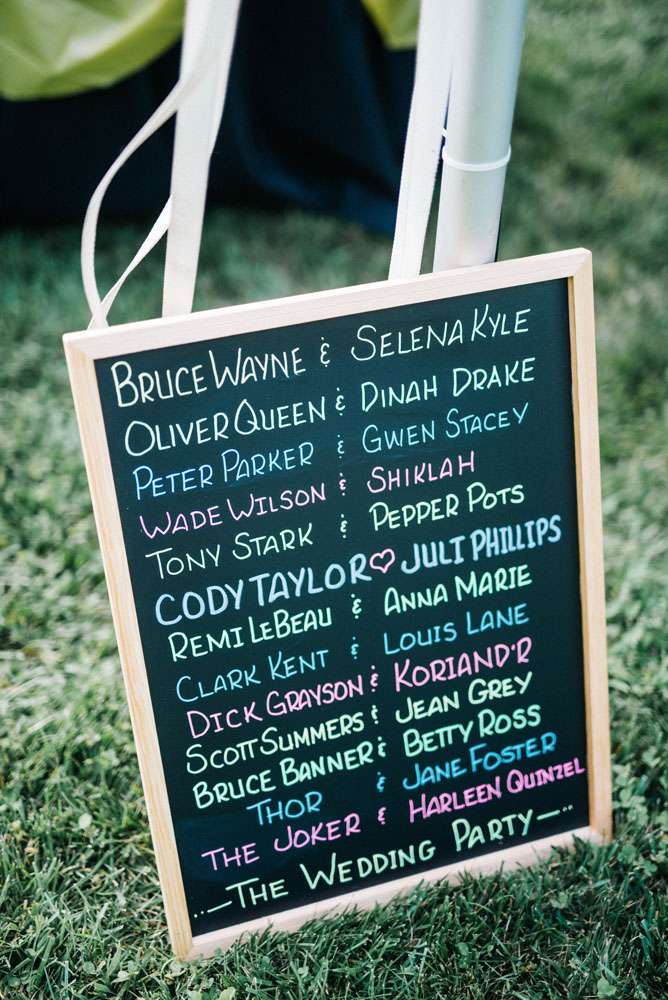 BRUCE WAYNE & SELENA KYLE
OLIVER QUEEN & DINAH DRAKE
PETER PARKER & GWEN STACEY
WADE WILSON & SHIKLAH
TONY STARK & PEPPER POTS
CODY TAYLOR ♡ JULI PHILLIPS
REMI LEBEAU & ANNA MARIE
CLARK KENT & LOUIS LANE
DICK GRAYSON & KORIAND'R
SCOTT SUMMERS & JEAN GREY
BRUCE BANNER & BETTY ROSS
THOR & JANE FOSTER
THE JOKER & HARLEEN QUINZEL
..—THE WEDDING PARTY—..